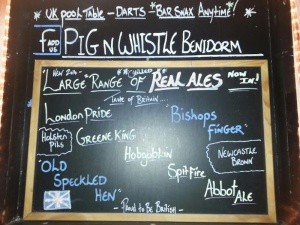 * UK POOL TABLE - DARTS * BAR SNAX ANYTIME! *
f ADD US PIG N WHISTLE BENIDORM
LARGE RANGE OF REAL ALES NOW IN!
Taste of Britain...
LONDON PRIDE
"BISHOPS FINGER"
HOLSTEN PILS
GREENE KING
HOBGOBLIN
NEWCASTLE BROWN
"OLD SPECKLED HEN"
SPITFIRE
ABBOT ALE
- PROUD TO BE BRITISH -